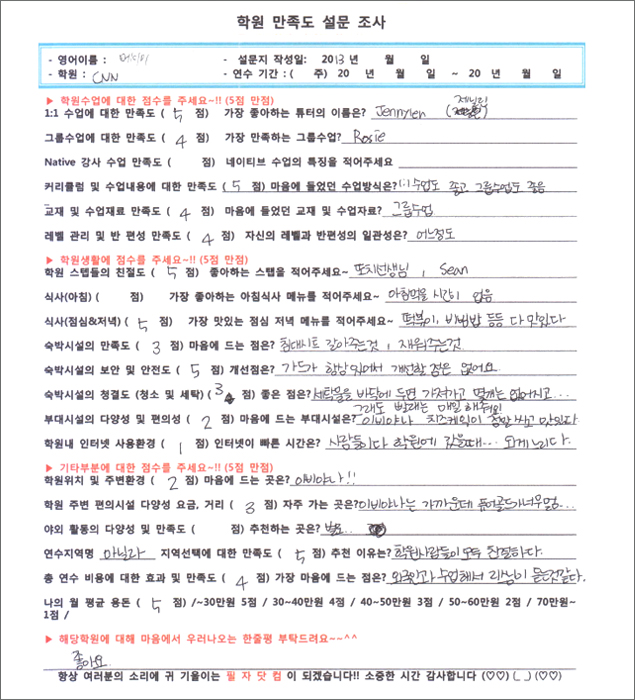 학원 만족도 설문 조사
- 영어이름 : - 설문지 작성일: 2013 년 월 일
- 학원 : CNN - 연수 기간 : ( 주) 20 년 월 일 ~ 20 년 월 일
▶ 학원수업에 대한 점수를 주세요~!! (5점 만점)
1:1 수업에 대한 만족도 ( 5 점) 가장 좋아하는 튜터의 이름은? Jennylen
그룹수업에 대한 만족도 ( 4 점) 가장 만족하는 그룹수업? Rosie
Native 강사 수업 만족도 ( 점) 네이티브 수업의 특징을 적어주세요
커리큘럼 및 수업내용에 대한 만족도 ( 5 점) 마음에 들었던 수업방식은? 1:1수업도 좋고 그룹수업도 좋음
교재 및 수업재료 만족도 ( 4 점) 마음에 들었던 교재 및 수업자료? 그룹수업
레벨 관리 및 반 편성 만족도 ( 4 점) 자신의 레벨과 반편성의 일관성은? 어느정도
▶ 학원생활에 대한 점수를 주세요~!! (5점 만점)
학원 스텝들의 친절도 ( 5 점) 좋아하는 스텝을 적어주세요~ 또치선생님, Sean
식사(아침) ( 점) 가장 좋아하는 아침식사 메뉴를 적어주세요~ 아침먹을 시간이 없음
식사(점심&저녁) ( 5 점) 가장 맛있는 점심 저녁 메뉴를 적어주세요~ 떡볶이, 비빔밥 등등 다 맛있다
숙박시설의 만족도 ( 3 점) 마음에 드는 점은? 침대시트 갈아주는것, 재워주는것
숙박시설의 보안 및 안전도 ( 5 점) 개선점은? 가드가 항상있어서 개선할 점은 없어요
숙박시설의 청결도 (청소 및 세탁) ( 3 점) 좋은 점은? 세탁물을 바닥에 두면 가져가고 몇개는 없어지고… 그래도 빨래는 매일 해줘요
부대시설의 다양성 및 편의성 ( 2 점) 마음에 드는 부대시설은? 이비야나 치즈케익이 정말 싸고 맛있다
학원내 인터넷 사용환경 ( 1 점) 인터넷이 빠른 시간은? 사람들이다 학원에 갔을때… 되게 느리다.
▶ 기타부분에 대한 점수를 주세요~!! (5점 만점)
학원위치 및 주변환경 ( 2 점) 마음에 드는 곳은? 이비야나!!
학원 주변 편의시설 다양성 요금, 거리 ( 3 점) 자주 가는 곳은? 이비야나는 가까운데 퓨어골드가너무멀…
야외 활동의 다양성 및 만족도 ( 점) 추천하는 곳은? 별로…
연수지역명 마닐라 지역선택에 대한 만족도 ( 5 점) 추천 이유는? 학원사람들이 모두 친절하다.
총 연수 비용에 대한 효과 및 만족도 ( 4 점) 가장 마음에 드는 점은? 외국인과 수업해서 리스닝이 는것같다.
나의 월 평균 용돈 ( 5 점) /~30만원 5점 / 30~40만원 4점 / 40~50만원 3점 / 50~60만원 2점 / 70만원~
1점 /
▶ 해당학원에 대해 마음에서 우러나오는 한줄평 부탁드려요~~^^
좋아요
항상 여러분의 소리에 귀 기울이는 필 자 닷 컴 이 되겠습니다!! 소중한 시간 감사합니다 (♡♡) (_ _) (♡♡)